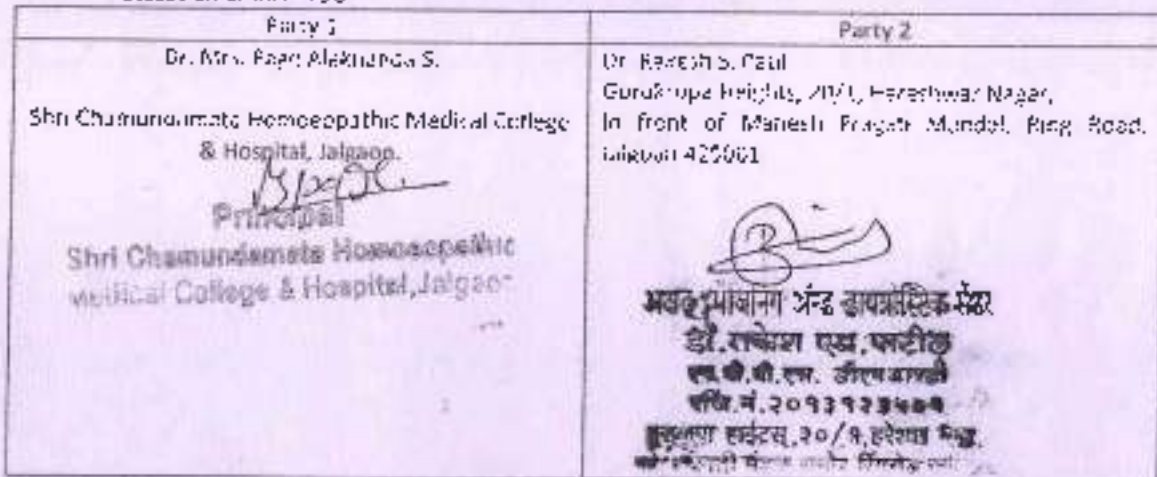 Party 1
Dr. Mrs. Alaknanda S.
Shri Chamundamata Homoeopathic Medical College
& Hospital, Jalgaon.
Principal
Shri Chamundamata Homoeopathic
Medical College & Hospital, Jalgaon
Party 2
Dr. Rakesh S. Patil
Gurukrupa Heights, 20/1, Hareshwar Nagar,
In front of Pragati Mandal, Ring Road,
Jalgaon 425001
इमेजिंग अॅन्ड डायग्नोस्टिक सेंटर
डॉ. राकेश एस. पाटील
एम.बी.बी.एस. डीएमआरडी
रजि.नं.
गुरुकृपा हाईटस्, २०/१, हरेश्वर नगर,